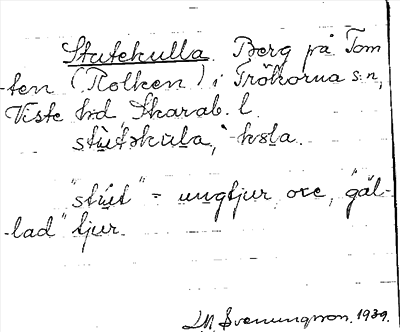 Stutekulla. Berg på Tom
-ten (Rolken) i Trökörna s:n,
Viste hd Skarab. l.
stùtəkùla, -kɷla.
"stùt" = ungtjur, oxe, "gäl-
-lad" tjur.
L.M. Svenungsson. 1939.